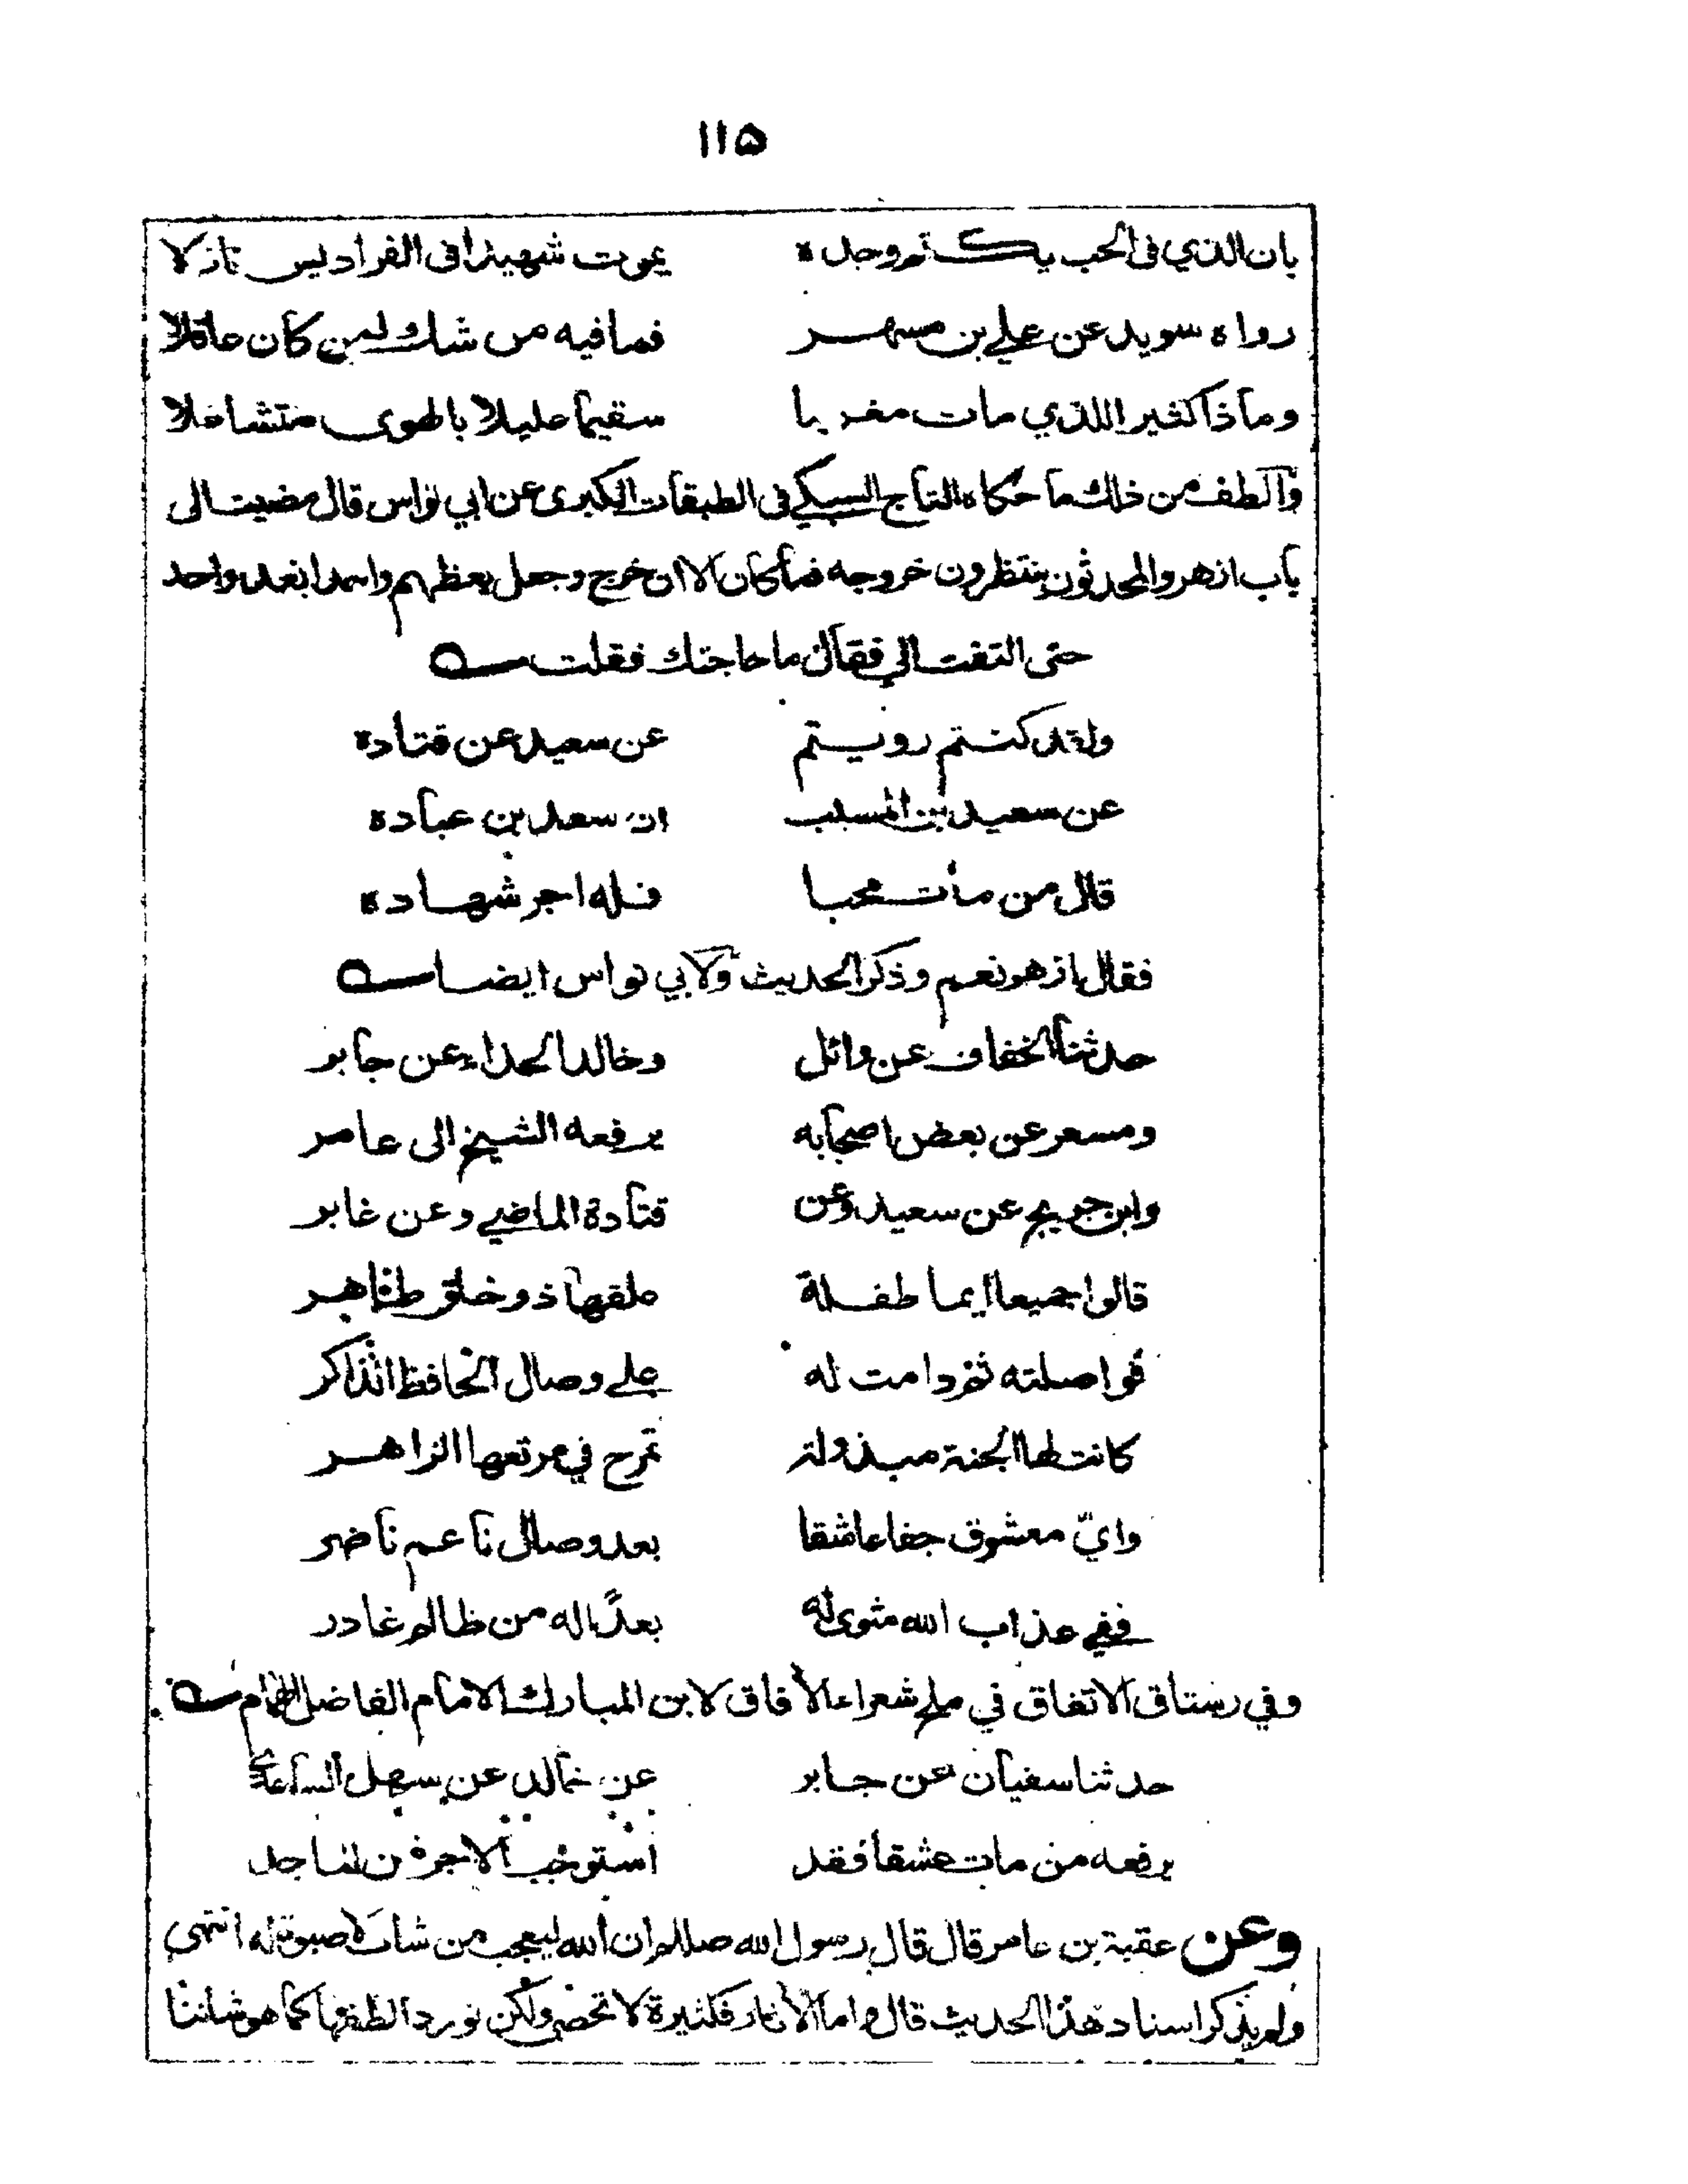 ١١٥
بان الذي في الحب يكتم وجده يموت شهيدا في الفراديس نازلا
رواه سويد عن علي بن مسهر فما فيه من شك لمن كان عاقلا
وماذا كثير اللذي مات مغرما سقيما عليلا بالهوى متشاغلا
والطف من ذلك ما حكاه التاج السبكي في الطبقات الكبرى عن ابي نواس قال مضيت الى
باب ازهر والمحدثون ينتظرون خروجه فما كان الا ان خرج وجعل يعظهم واحدا بعد واحد
حتى التفت الي فقال ما حاجتك فقلت
ولقد كنتم رويتم عن سعيد عن قتادة
عن سعيد بن المسيب ان سعد بن عبادة
قال من مات محبا فله اجر شهادة
فقال ازهر نعم وذكر الحديث ولابي نواس ايضا
حدثنا الخفاف عن وائل وخالد الحذاء عن جابر
ومسعر عن بعض اصحابه يرفعه الشيخ الى عامر
وابن جريج عن سعيد وعن قتادة الماضي وعن غابر
قالوا جميعا ايما طفلة علقها ذو خلق طاهر
فواصلته ثم دامت له على وصال الحافظ الذاكر
كانت لها الجنة مبذولة تمرح في مرتعها الزاهر
وايّ معشوق جفا عاشقا بعد وصال ناعم ناضر
ففي عذاب الله مثوى له بعدًا له من ظالم غادر
وفي رستاق الاتفاق في ملح شعراء الآفاق لابن المبارك الامام الفاضل الهمام
حدثنا سفيان عن جابر عن خالد عن سهل الساعدي
يرفعه من مات عشقا فقد استوجب الاجر من الماجد
وعن عقبة بن عامر قال قال رسول الله صللم ان الله ليعجب من شاب لا صبوة له انتهى
ولم يذكر اسناد هذا الحديث قال واما الآثار فكثيرة لا تحصى ولكن نورد الطفها كما هو شاننا